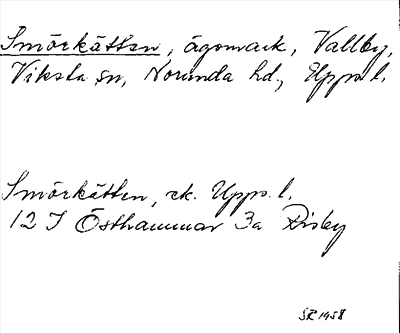 Smörkätten, ägomark, Vallby,
Viksta sn, Norunda hd., Upps. l.
Smörkätten, ek. Upps. l.
12 I Östhammar 3a Risby
SR 1958